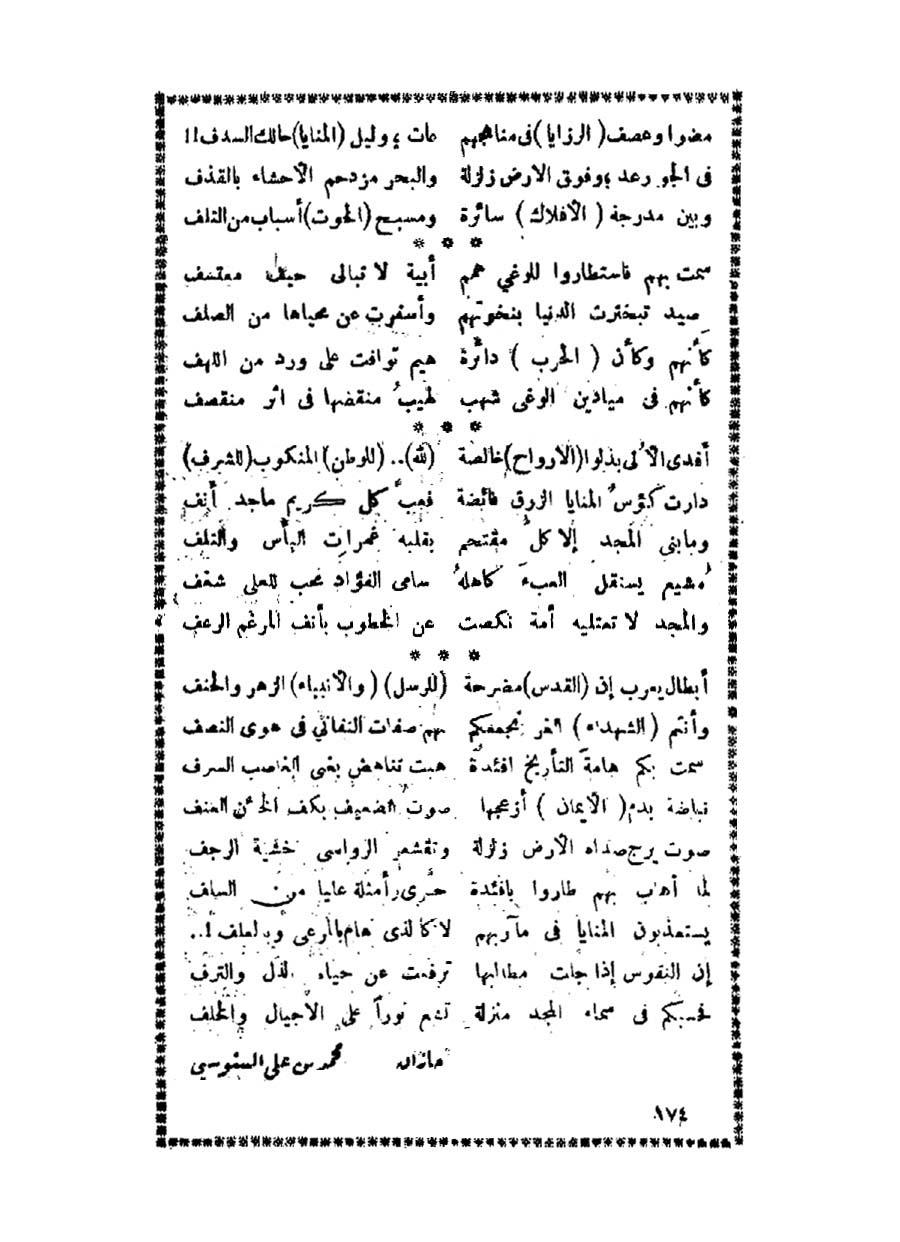 مضوا وعصف ( الرزايا ) فى مناهجهم عات ، وليل (المنايا) حالك السدف!!
فى الجو رعد ، وفوق الارض زلزلة والبحر مزدحم الأحشاء بالقذف
وبين مدرجة ( الأفلاك ) سائرة ومسبح (الحوت) أسباب من التلف
* * *
سمت بهم فاستطاروا للوغى همم أبية لا تبالى حيف معتسف
صيد تبخترت الدنيا بنخوتهم وأسفرت عن محياها من الصلف
كأنهم وكأن ( الحرب ) دائرة هيم توافت على ورد من اللهف
كأنهم فى ميادين الوغى شهب لهيبُ منقضها فى اثر منقصف
* * *
أفدى الألى بذلوا (الأرواح) خالصة (لله).. (للوطن) المنكوب (للشرف)
دارت كؤوسُ المنايا الزرق فائضة فعبَّ كل كريم ماجد أنف
وما بنى المجد إلا كلُّ مقتحم بقلبه غمرات اليأس والتلف
مشيع يستقل العبءَ كاهلهُ سامى الفؤاد محب للعلى شغف
والمجد لا تعتليه أمة نكصت عن الخطوب بأنف المرغم الرعف
* * *
أبطال يعرب إن (القدس) مضرحة (للرسل) ( والأنبياء) الزهر والحنف
وأنتم (الشهداء) الغر تجمعكم بهم صفات التفانى فى هوى النصف
سمت بكم هامةَ التأريخ افئدةٌ هبت تناهض بغى الغاصب السرف
نباضة بدم ( الأيمان ) أزعجها صوت الضعيف بكف الخائن العنف
صوت يرج صداه الأرض زلزلة وتقشعر الرواسى خشية الرجف
لما أهاب بهم طاروا بافئدة حرّى وأمثلة عليا من السلف
يستعذبون المنايا فى مآربهم لا كالذى هام بالمرعى وبالعلف !..
إن النفوس إذا جلت مطالبها ترفعت عن حياة الذل والترف
فحسبكم فى سماء المجد منزلة تشع نوراً على الأجيال والخلف
جازان محمد بن على السنوسي
١٧٤